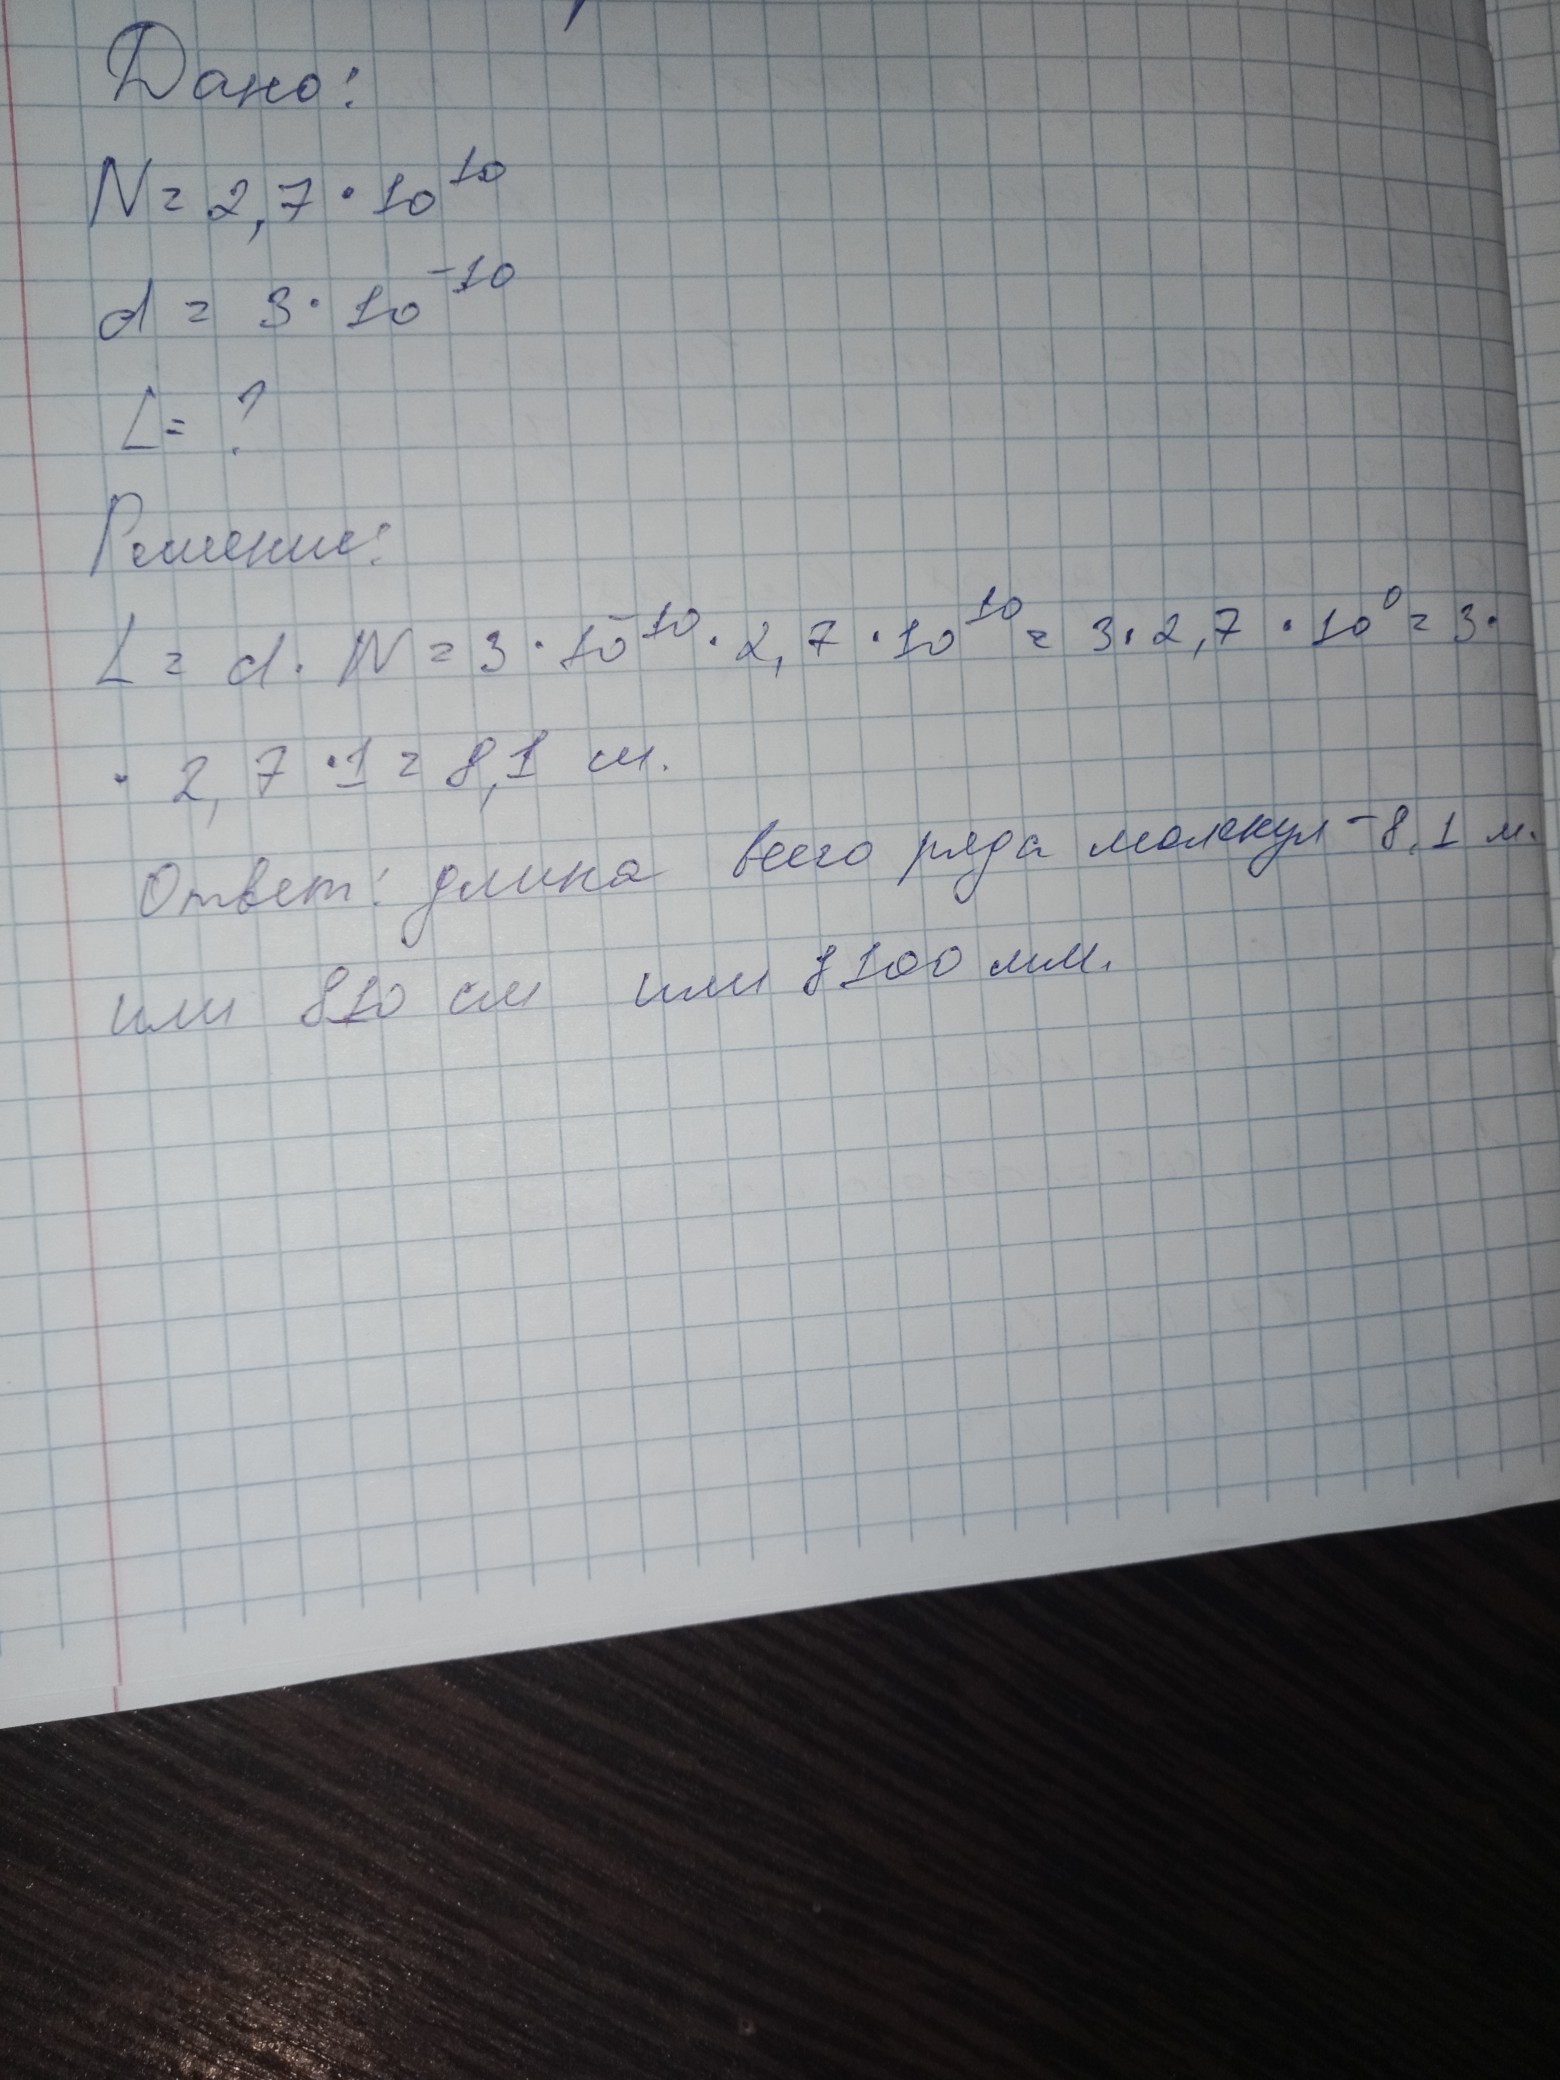 Дано:
N = 2,7 · 10¹⁰
d = 3 · 10⁻¹⁰
L = ?
Решение:
L = d · N = 3 · 10⁻¹⁰ · 2,7 · 10¹⁰ = 3 · 2,7 · 10⁰ = 3 ·
· 2,7 · 1 = 8,1 см.
Ответ: длина всего ряда молекул - 8,1 м.
или 810 см или 8100 мм.